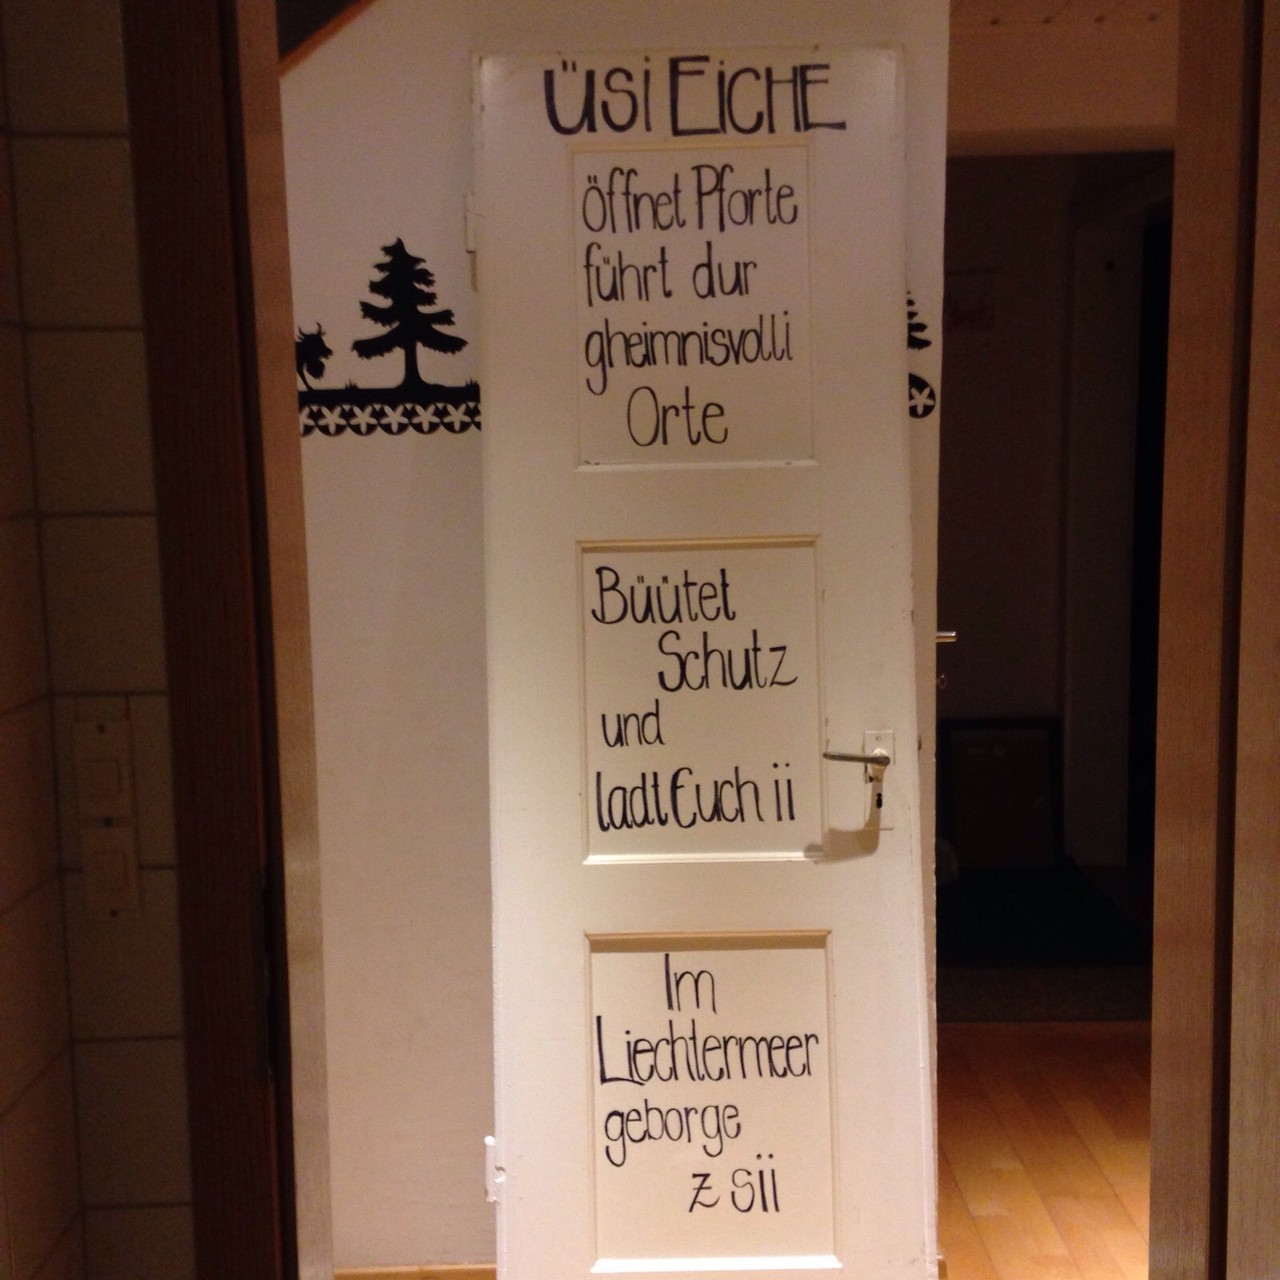 ÜSi EiCHE
öffnet Pforte
führt dur
gheimnisvolli
Orte
Büütet
Schutz
und
ladt Euch ii
Im
Liechtermeer
geborge
z sii